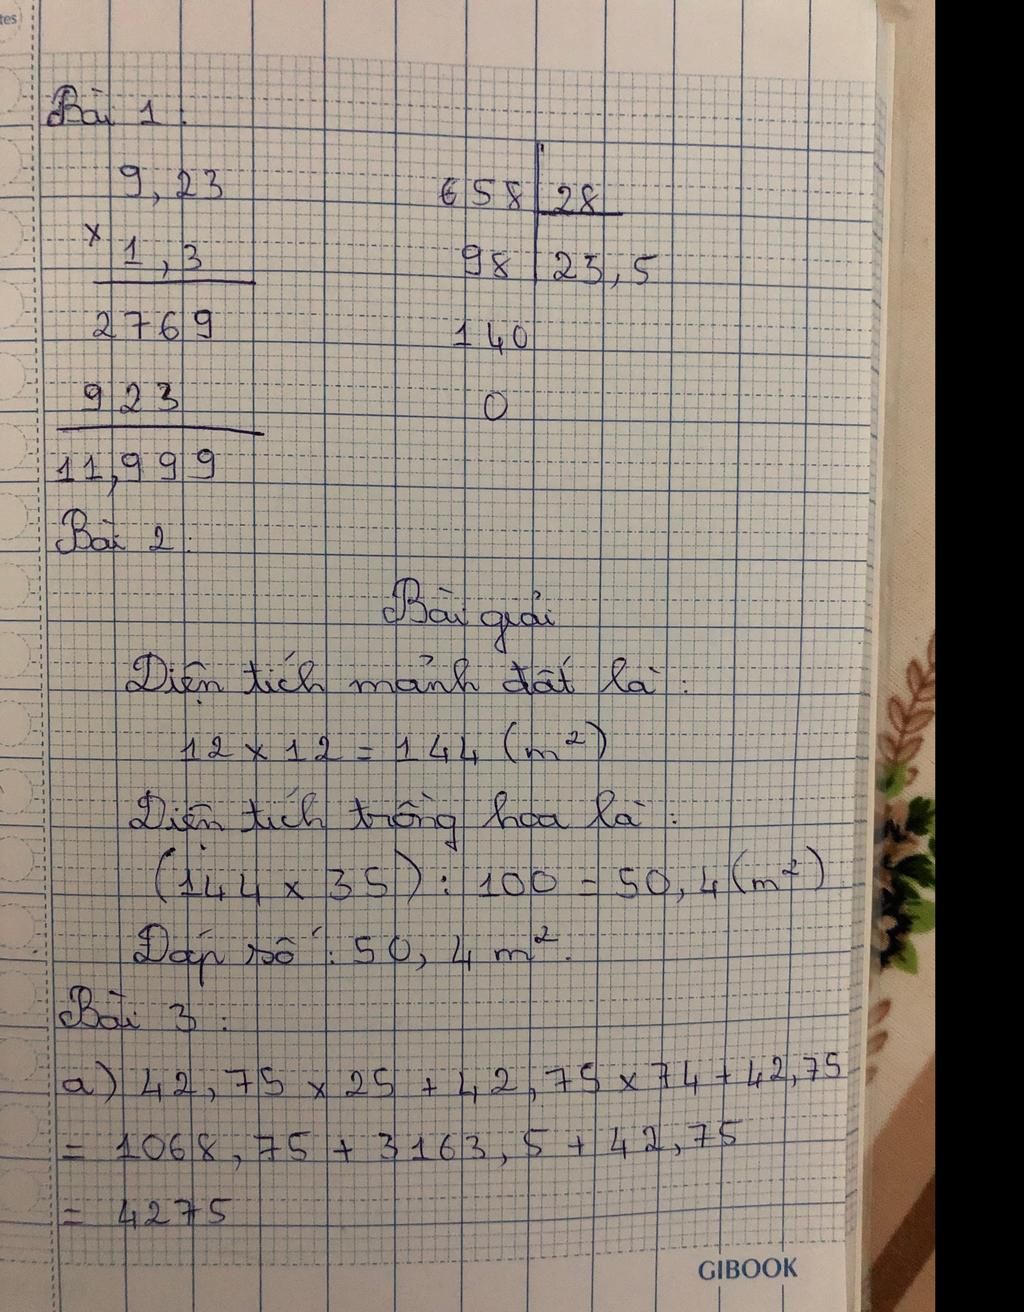 tes
Bài 1 :
9,23
x 1,3
2769
923
11,999
658 28
98 23,5
140
0
Bài 2 :
Bài giải
Diện tích mảnh đất là :
12 x 12 = 144 (m²)
Diện tích trồng hoa là :
(144 x 35) : 100 = 50,4 (m²)
Đáp số : 50,4 m².
Bài 3 :
a) 42,75 x 25 + 42,75 x 74 + 42,75
= 1068,75 + 3163,5 + 42,75
= 4275
GIBOOK